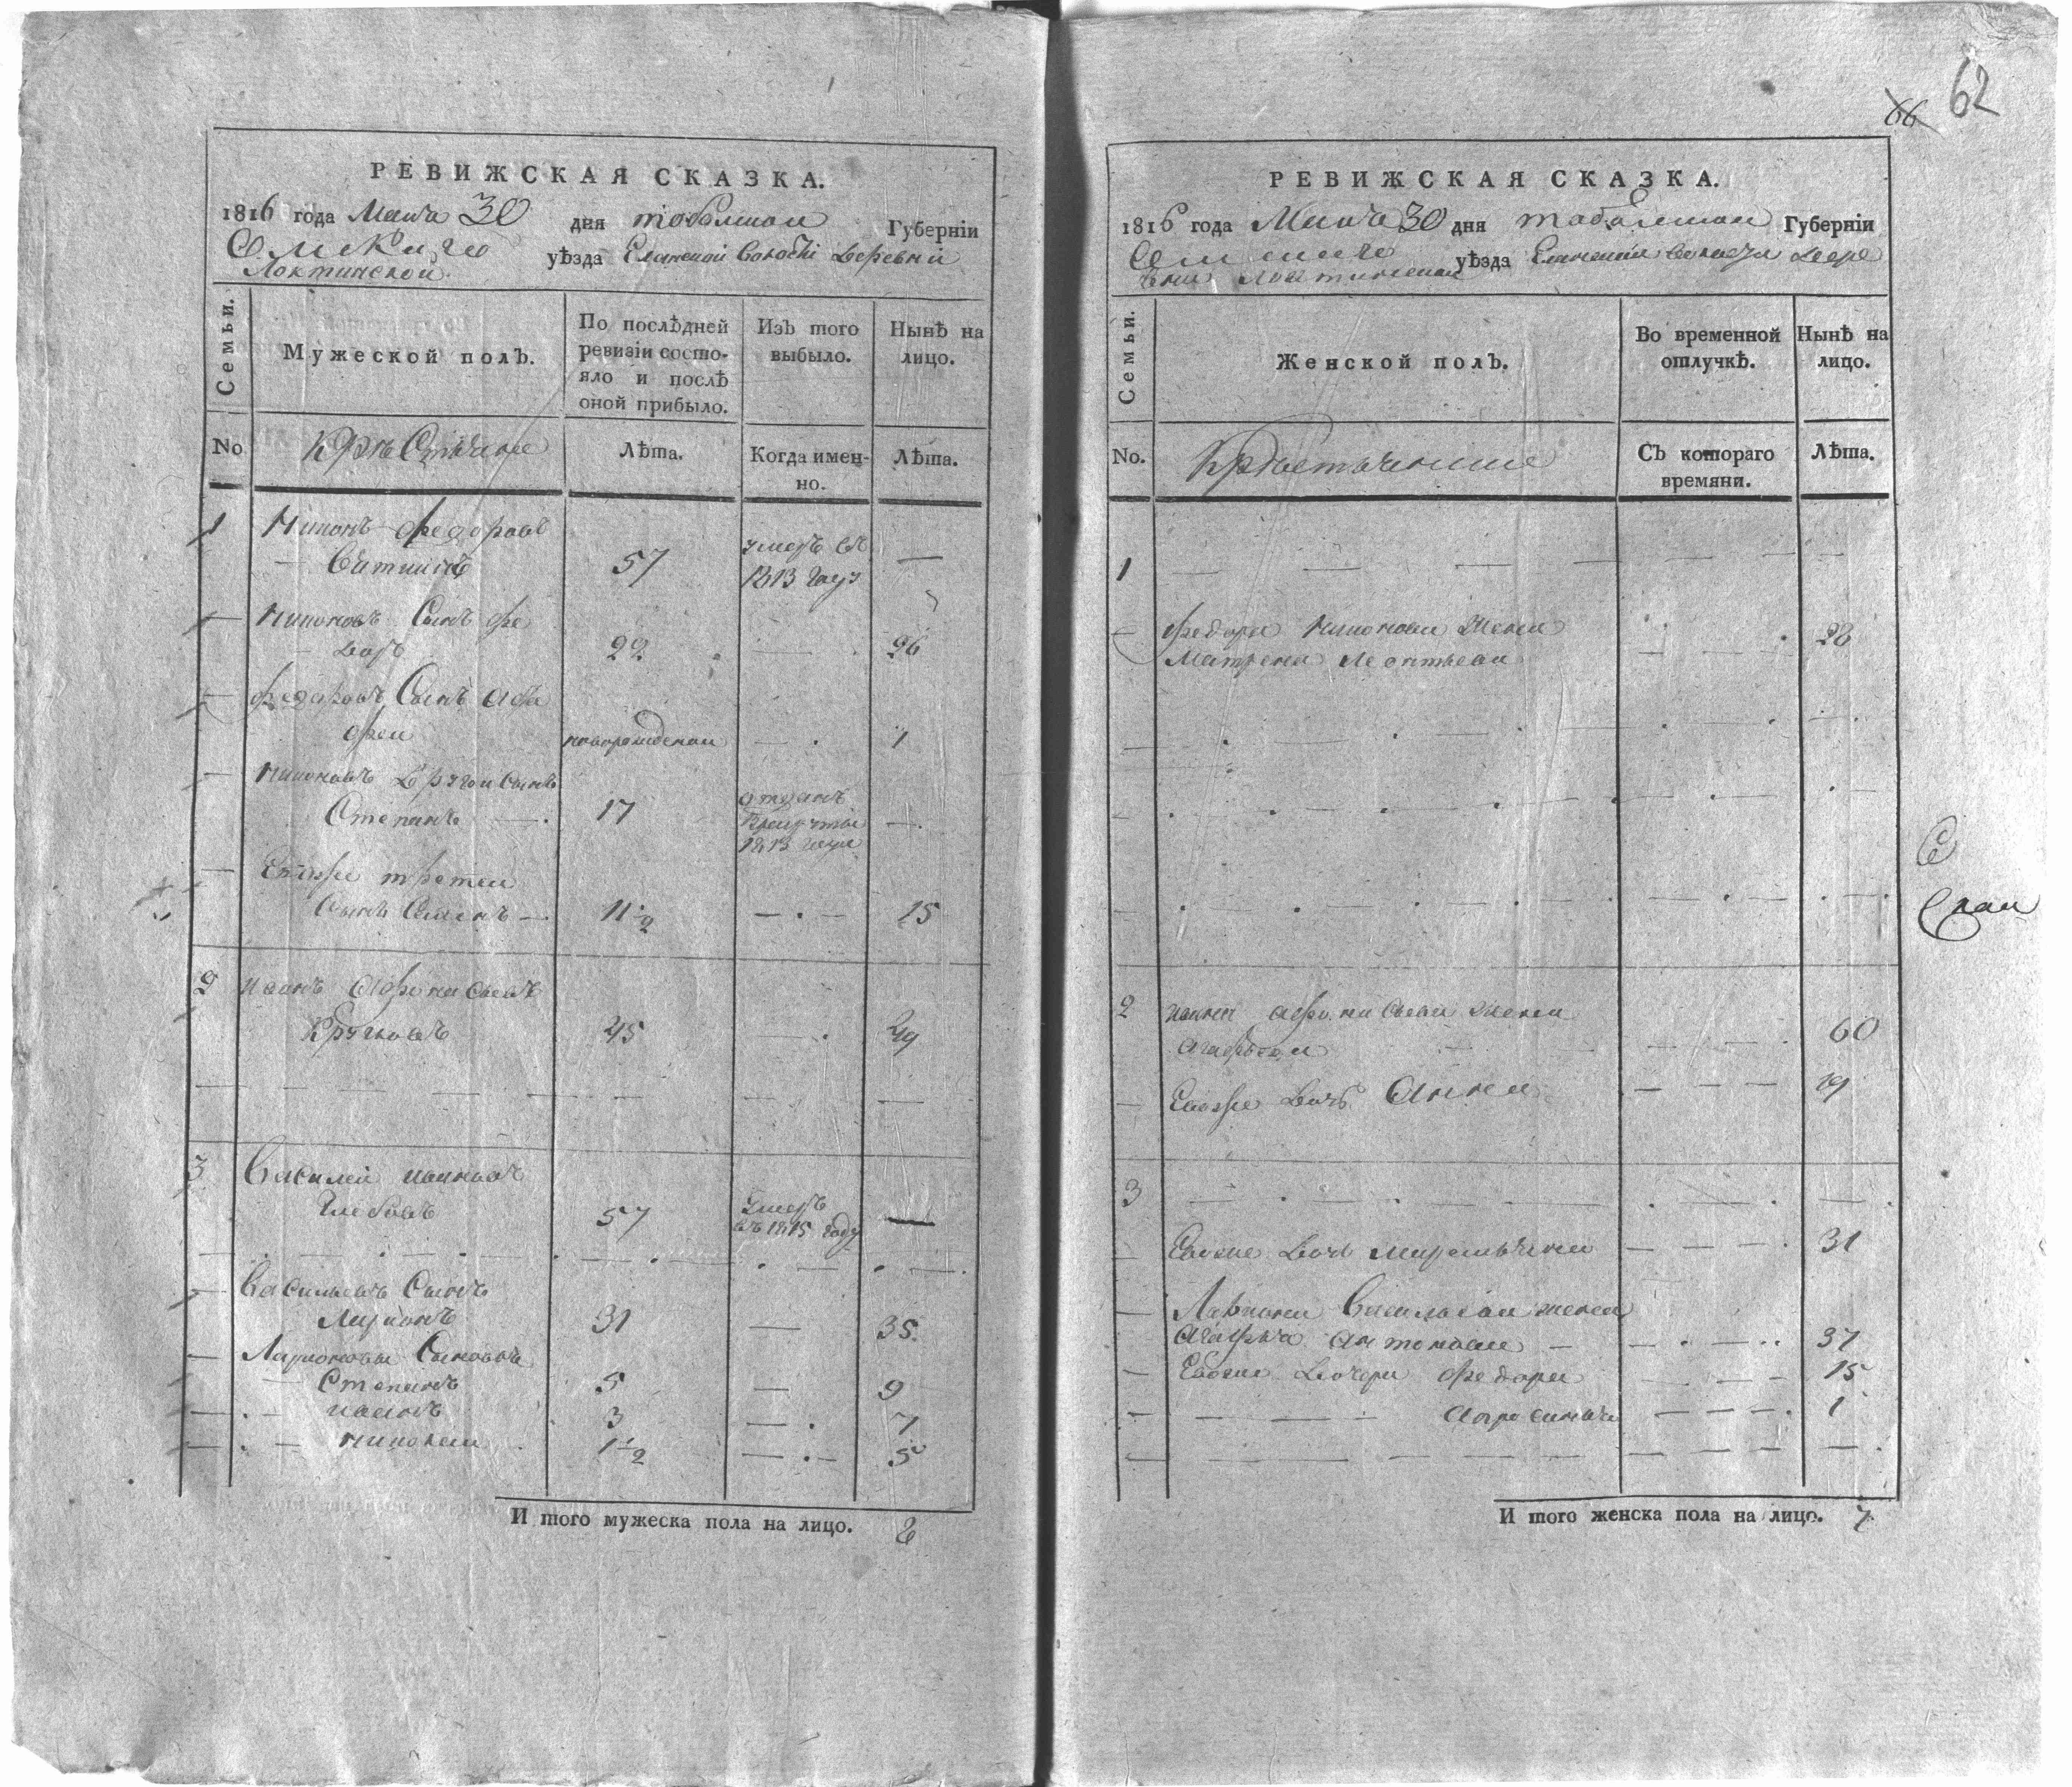 62
66
РЕВИЖСКАЯ СКАЗКА.
1816 года Маия 30 дня тобольской Губерніи
Омскаго уѣзда Еланской волости деревни
Локтинской.
Семьи.
Мужеской полъ.
По послѣдней ревизіи состояло и послѣ оной прибыло.
Изъ того выбыло.
Нынѣ на лицо.
No
Крестьяне
Лѣта.
Когда именно.
Лѣта.
1 Никонъ Федоровъ
Вяткинъ 57 умеръ въ 1813 году —
Никоновъ Сынъ Фе
доръ 22 — 26
Федоровъ Сынъ
новорожденои — 1
Никоновъ другои Сынъ
Степанъ — 17 отданъ
в рекруты
1813 года —
Ево же третеи
Сынъ Семенъ — 11 1/2 — 15
2 Иванъ Афонасьевъ
45 — 49
3 Василеи Ивановъ
Глебовъ 57 Умеръ
въ 1815 году —
Васильевъ Сынъ
Ларионъ 31 — 35
Ларионовы Сыновья
Степанъ 5 — 9
Иванъ 3 — 7
Николаи 1 1/2 — 5
И того мужеска пола на лицо. 8
РЕВИЖСКАЯ СКАЗКА.
1816 года Маия 30 дня тобольской Губерніи
Омскаго уѣзда Еланской волости дере
вни Локтинской
Семьи.
Женской полъ.
Во временной отлучкѣ.
Нынѣ на лицо.
No.
Крестьянские
Съ котораго времяни.
Лѣта.
1
Федора Никонова жена
Матрена Леонтьева 28
2 Ивана Афонасьева жена
60
Ево же дочь Анна — 19
3
Ево же дочь Маремьяна — 31
Лариона Васильева жена
Агафья Антонова — 37
Ево же дочери Федора 15
Апросинья 1
И того женска пола на лицо. 7